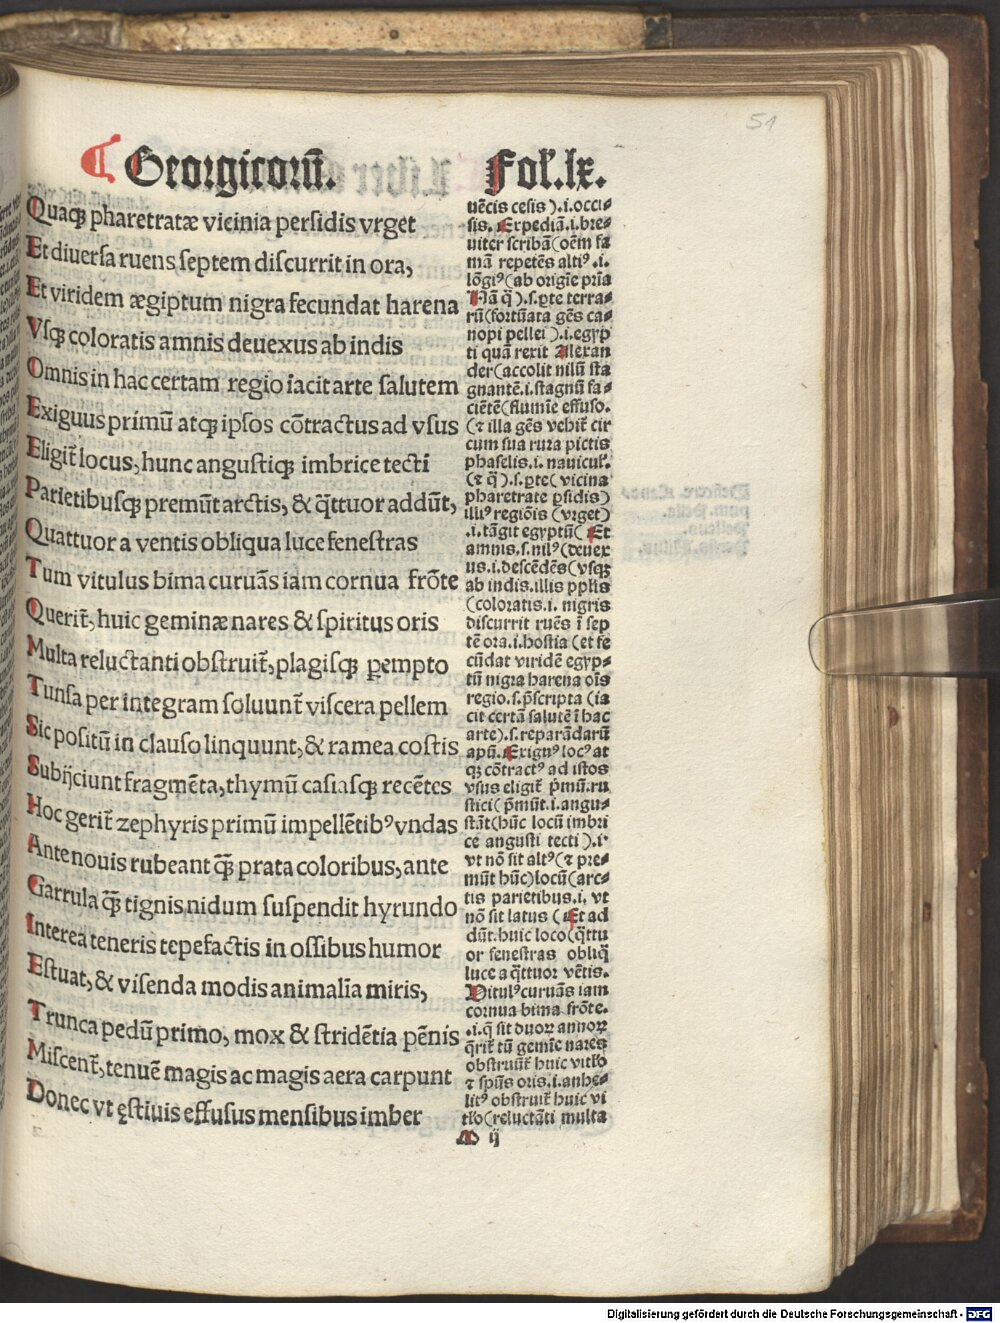 51
⁋ Georgicorū. Fol'. lx.
Quacꝫ pharetratæ vicinia persidis vrget
Et diuersa ruens septem discurrit in ora,
Et viridem ægiptum nigra fecundat harena
Vsqꝫ coloratis amnis deuexus ab indis
Omnis in hac certam regio iacit arte salutem
Exiguus primū atqꝫ ipsos cōtractus ad vsus
Eligit̄ locus, hunc angustiqꝫ imbrice tecti
Parietibusqꝫ premūt arctis, & q̄ttuor addūt,
Quattuor a ventis obliqua luce fenestras
Tum vitulus bima curuās iam cornua frōte
Querit̄, huic geminæ nares & spiritus oris
Multa reluctanti obstruit̄, plagisqꝫ ꝑempto
Tunsa per integram soluunt̄ viscera pellem
Sic positū in clauso linquunt, & ramea costis
Subijciunt fragmēta, thymū casiasqꝫ recētes
Hoc gerit̄ zephyris primū impellētibꝰ vndas
Ante nouis rubeant qꝫ̄ prata coloribus, ante
Garrula qꝫ̄ tignis nidum suspendit hyrundo
Interea teneris tepefactis in ossibus humor
Estuat, & visenda modis animalia miris,
Trunca pedū primo, mox & stridētia pēnis
Miscent̄, tenuē magis ac magis aera carpunt
Donec vt ęstiuis effusus mensibus imber
uēcis cesis ).i.occi⸗
sis. Expediā.i.bre⸗
uiter scribā(oēm fa
mā repetēs altiꝰ .i.
lōgiꝰ(ab origīe pria
Nā q̄ ).s.ꝑte terra⸗
rū(fortūata gēs ca⸗
nopi pellei ).i.egyp
ti quā rexit Alexan
der(accolit nilū sta
gnantē.i.stagnū fa⸗
ciētē(flumīe effuso.
(⁊ illa gēs vehit̄ cir
cum sua rura pictis
phaselis.i. nauicul'.
(⁊ q̄ ).s.ꝑte( vicina
pharetrate ꝑsidis)
illiꝰ regiōis (vrget)
.i.tāgit egyptū( Et
amnis.s.nilꝰ(deuex
us.i.descēdēs(vsqꝫ
ab indis.illis pplis
(coloratis.i. nigris
discurrit ruēs ī sep
tē ora.i.hostia (et fe
cūdat viridē egyp⸗
tū nigra harena oīs
regio.s.p̄scripta (ia
cit certā salutē ī hac
arte).s.reparādarū
apū. Exignꝰ locꝰ at
qꝫ cōtractꝰ ad istos
vsus eligit̄ p̄mū.ru
stici( p̄mūt.i.angu⸗
stāt(hūc locū imbri
ce angusti tecti ).iꝰ
vt nō sit altꝰ(⁊ pre⸗
mūt hūc)locū(arc⸗
tis parietibus.i. vt
nō sit latus ( Et ad
dūt.huic loco(q̄ttu
or fenestras obliq̄
luce a q̄ttuor vētis.
Vitulꝰcuruās iam
cornua bima frōte.
.i.q̄ sit duoꝝ annoꝝ
q̄rit̄ tū gemīe nares
obstruūt̄ huic vitl'o
⁊ spūs oris.i.anhe⸗
litꝰ obstruit̄ huic vi
tl'o(reluctāti multa
M ij
Digitalisierung gefördert durch die Deutsche Forschungsgemeinschaft - DFG